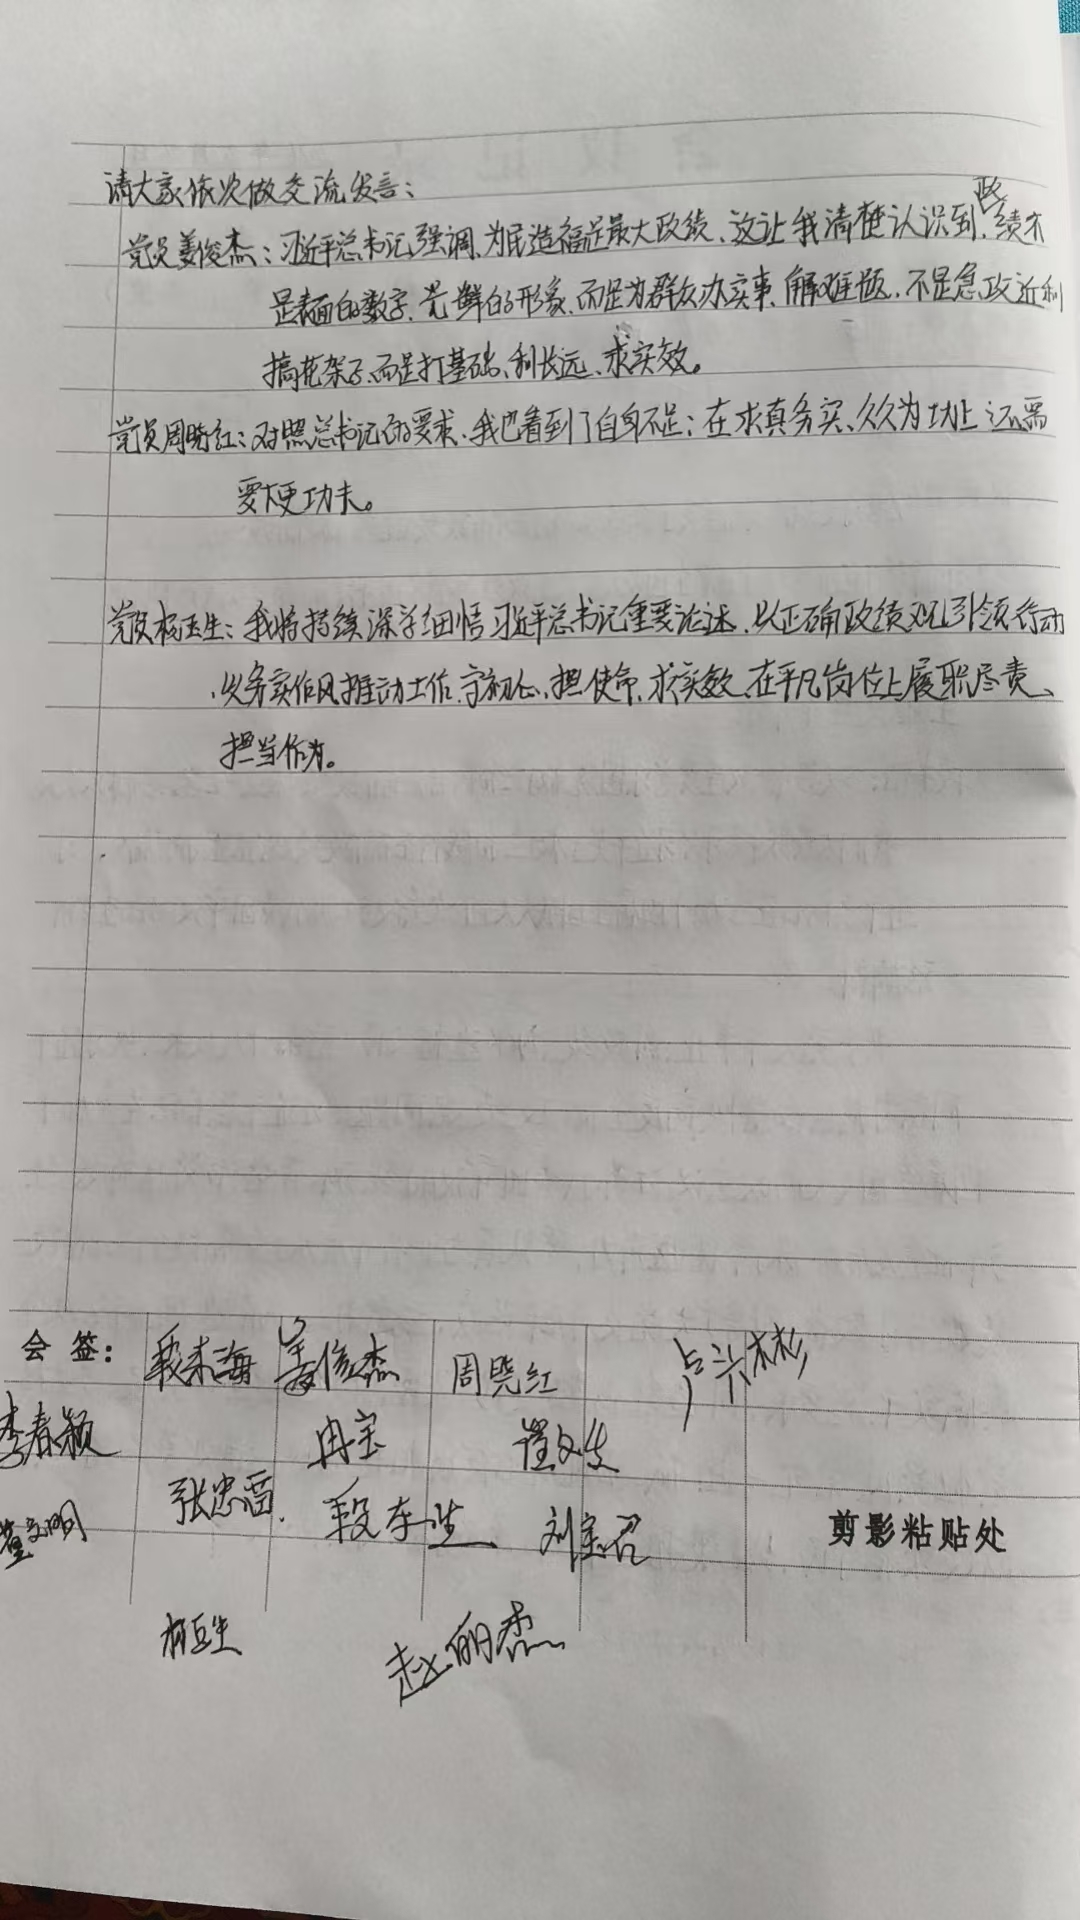 请大家依次做交流发言：
党员姜俊杰：习近平总书记强调、为民造福是最大政绩、这让我清楚认识到、政绩不
是表面的数字、光鲜的形象、而是为群众办实事、解难题、不是急政近利
搞花架子、而是打基础、利长远、求实效。
党员周晓红：对照总书记的要求、我也看到了自身不足：在求真务实、久久为功上还需
要下更功夫。
党员杨玉生：我将持续深学细悟习近平总书记重要论述、以正确政绩观引领行动
、以务实作风推动工作、守初心、担使命、求实效、在平凡岗位上履职尽责、
担当作为。
会签：
姜俊杰 周晓红
李春颖 冉宝 崔文生
董文明 张忠雷 段东生 刘宝召
剪影粘贴处
赵丽杰